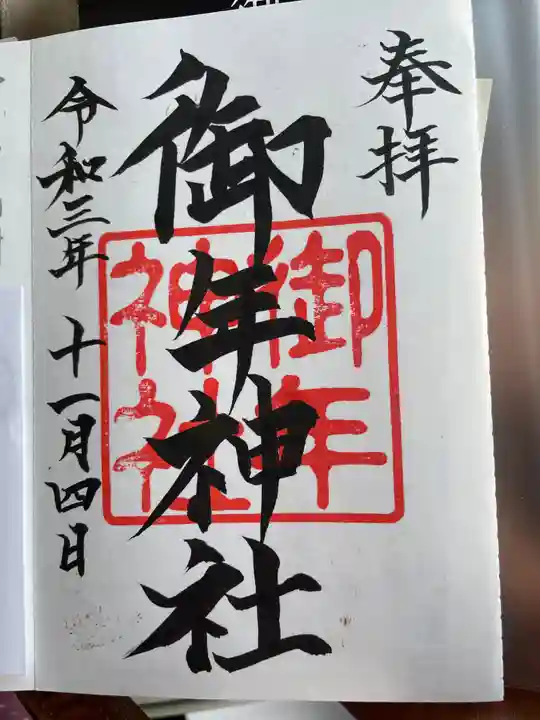 奉拝
御年神社
御年
神社
令和三年 十一月四日